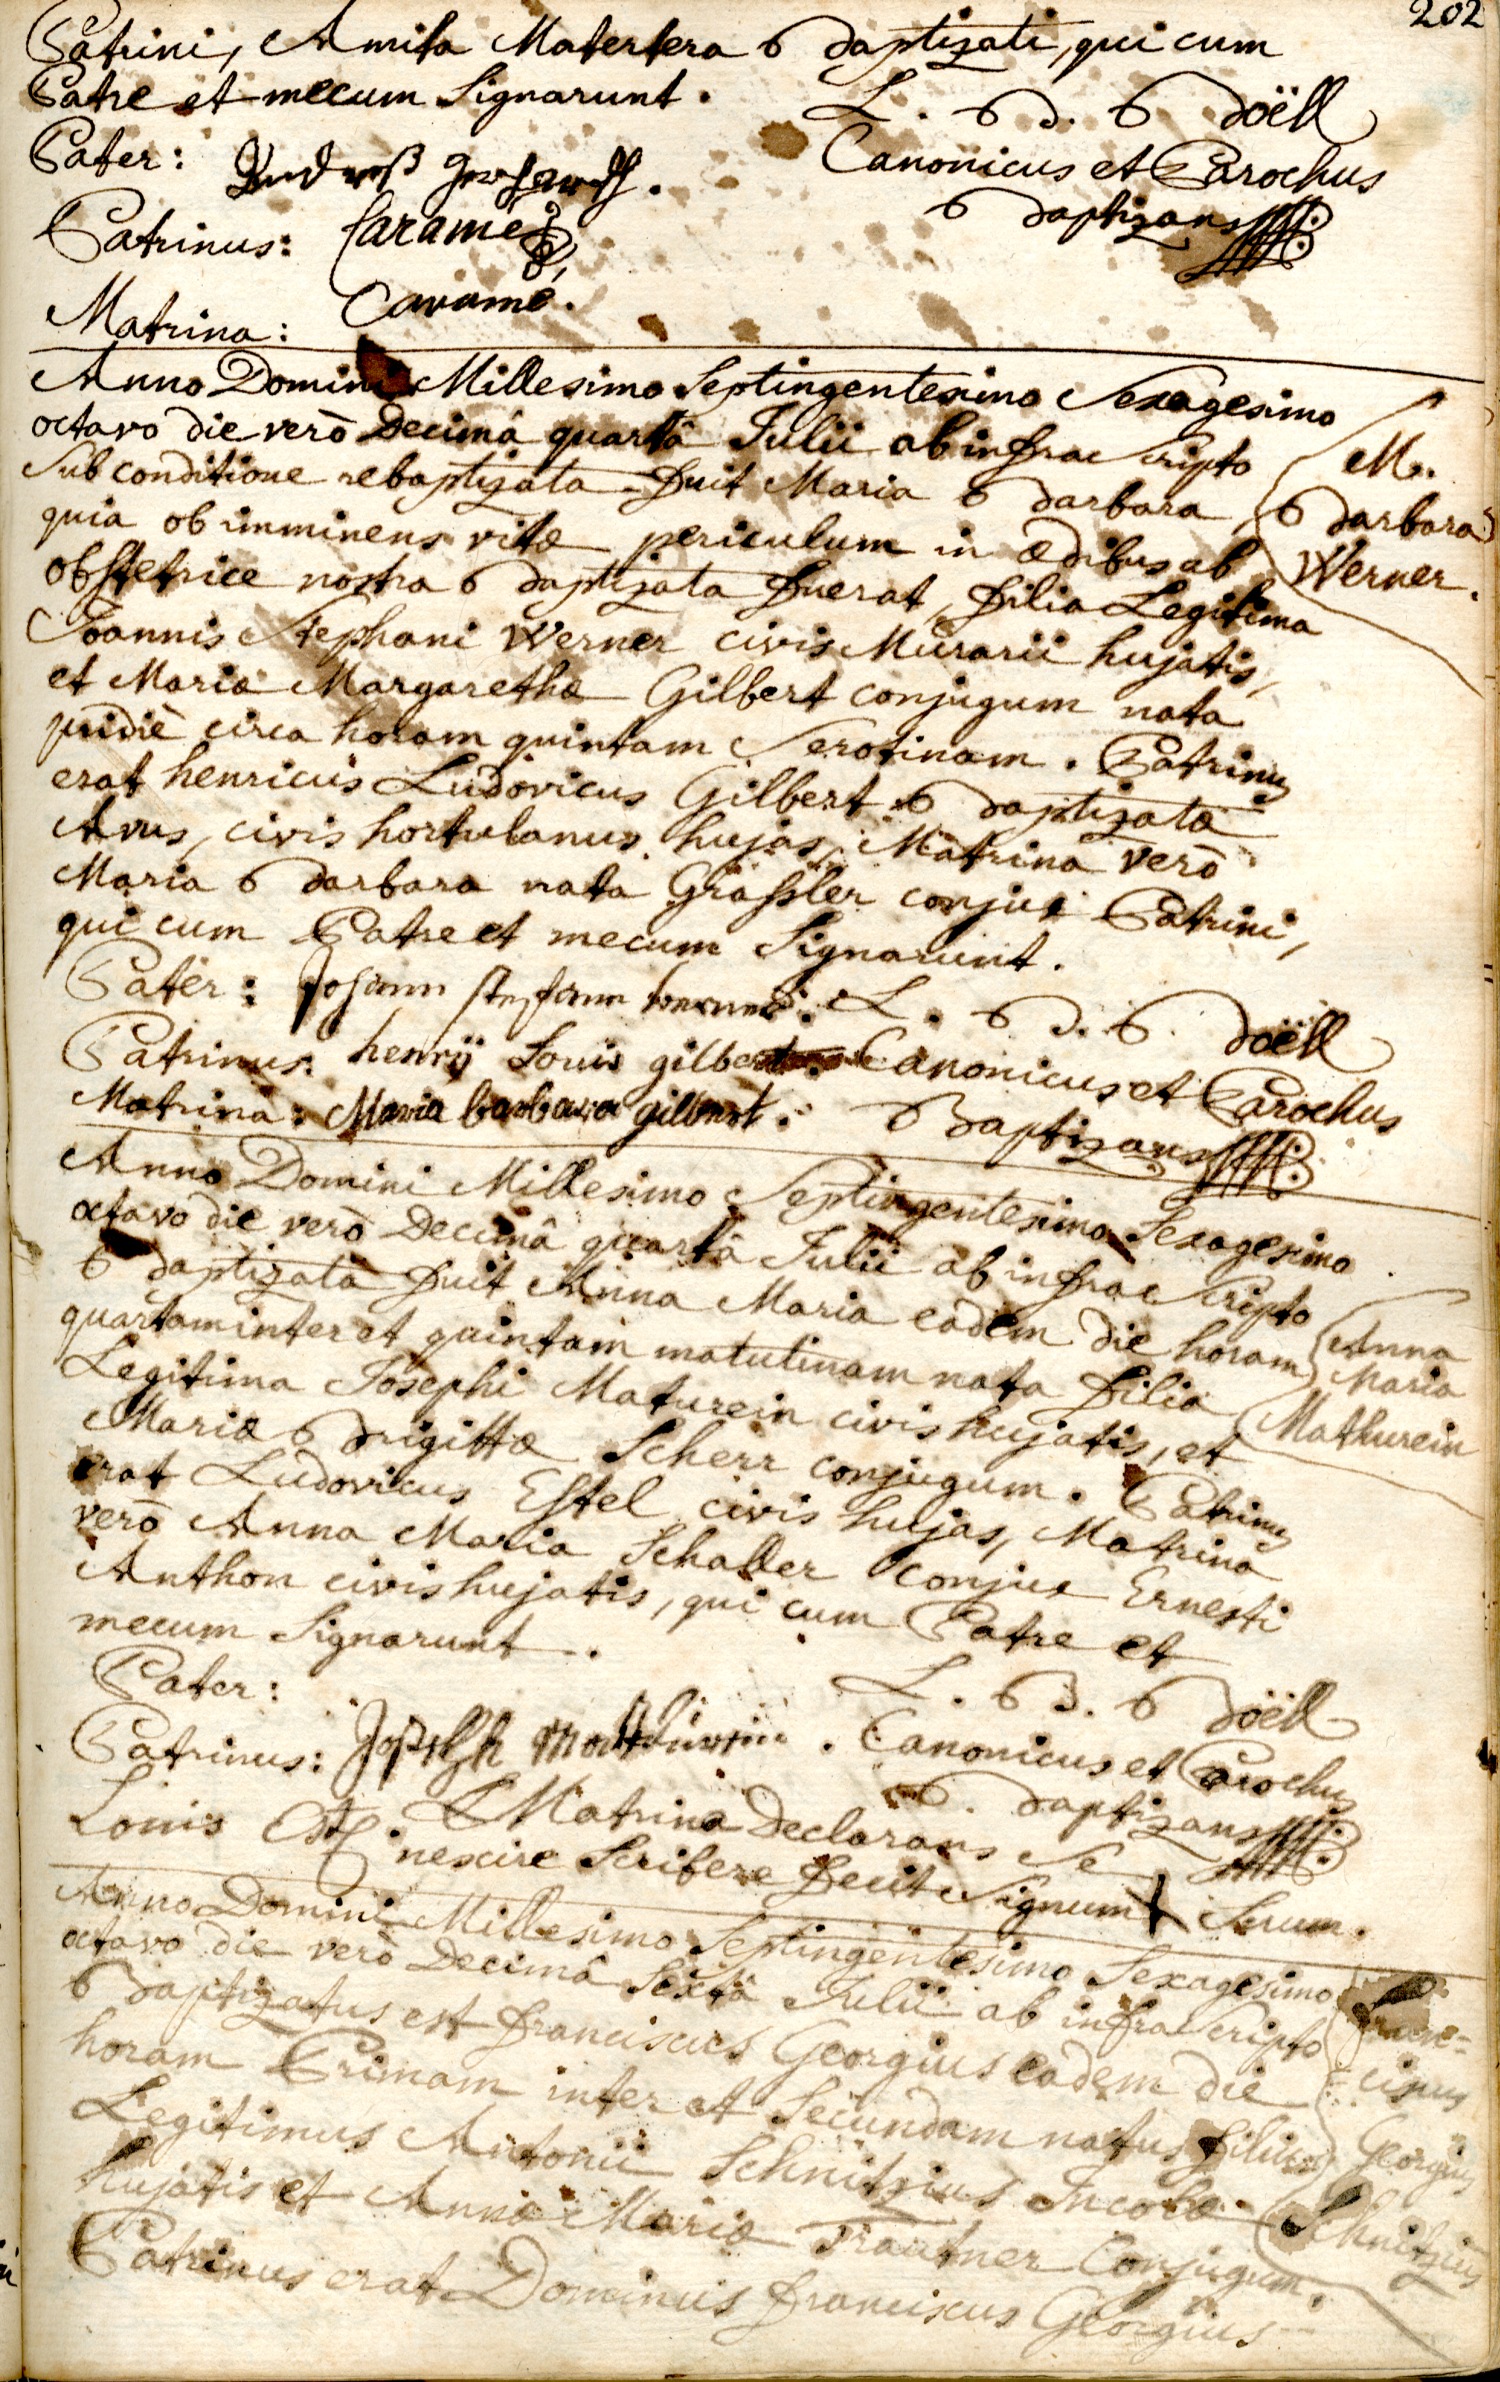 202
Patrini, Amita Matertera Baptizati, qui cum
Patre et mecum Signarunt.
L. B. B Böell
Canonicus et Parochus
Baptizans
Pater:
Patrinus: Caramé
Matrina: Caramé.
Anno Domini Millesimo Septingentesimo Sexagesimo
octavo die verò Decimâ quartâ Julii ab infra Scripto
Sub conditione rebaptizata fuit Maria Barbara
quia ob imminens vitæ periculum in ædibus ab
obstetrice nostra Baptizata fuerat, filia Legitima
Joannis Stephani Werner civis Murarii hujatis,
et Mariæ Margarethæ Gilbert conjugum nata
pridiè circa horam quintam Serotinam. Patrinus
erat henricus Ludovicus Gilbert Baptizatæ
Avus, civis hortulanus hujas, Matrina verò
Maria Barbara nata Grassler conjux Patrini,
qui cum Patre et mecum Signarunt.
M.
Barbara
Werner.
Pater: Johann stephann werner.
Patrinus: henrÿ Louis gilbert.
Matrina: Maria barbara gilbert.
L. B. B. Böell
Canonicus et Parochus
Baptizans
Anno Domini Millesimo Septingentesimo Sexagesimo
octavo die verò Decimâ quartâ Julii ab infra Scripto
Baptizata fuit Anna Maria eadem die horam
quartam inter et quintam matutinam nata filia
Legitima Josephi Maturein civis hujatis, et
Mariæ Brigittæ Scherr conjugum. Patrinus
erat Ludovicus Estel civis hujas, Matrina
verò Anna Maria Schaller conjux Ernesti
Anthon civis hujatis, qui cum Patre et
mecum Signarunt.
Anna
Maria
Mathurein
Pater:
L. B. B Böell
Patrinus: Joseph Matthurin.
Canonicus et Parochus
Baptizans
Louis Est
Matrina Declarans Se
nescire Scribere fecit Signum + Suum.
Anno Domini Millesimo Septingentesimo Sexagesimo
octavo die verò Decimâ Sextâ Julii ab infra Scripto
Baptizatus est franciscus Georgius eadem die
horam Primam inter et Secundam natus filius
Legitimus Antonii Schnitzius Incolæ
hujatis et Annæ Mariæ Trautner Conjugum.
Patrinus erat Dominus franciscus Georgius
Fran=
ciscus
Georgius
Schnitzius